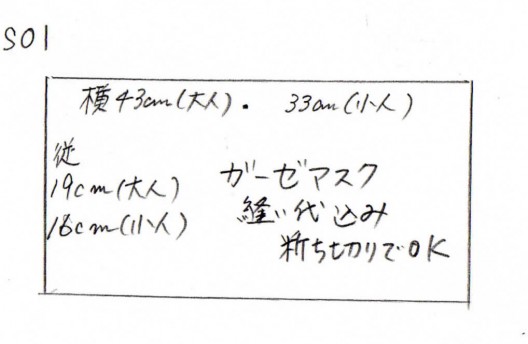 S01
横43cm(大人)・ 33cm(小人)
従
19cm(大人)
16cm(小人)
ガーゼマスク
縫い代込み
断ち切りでOK